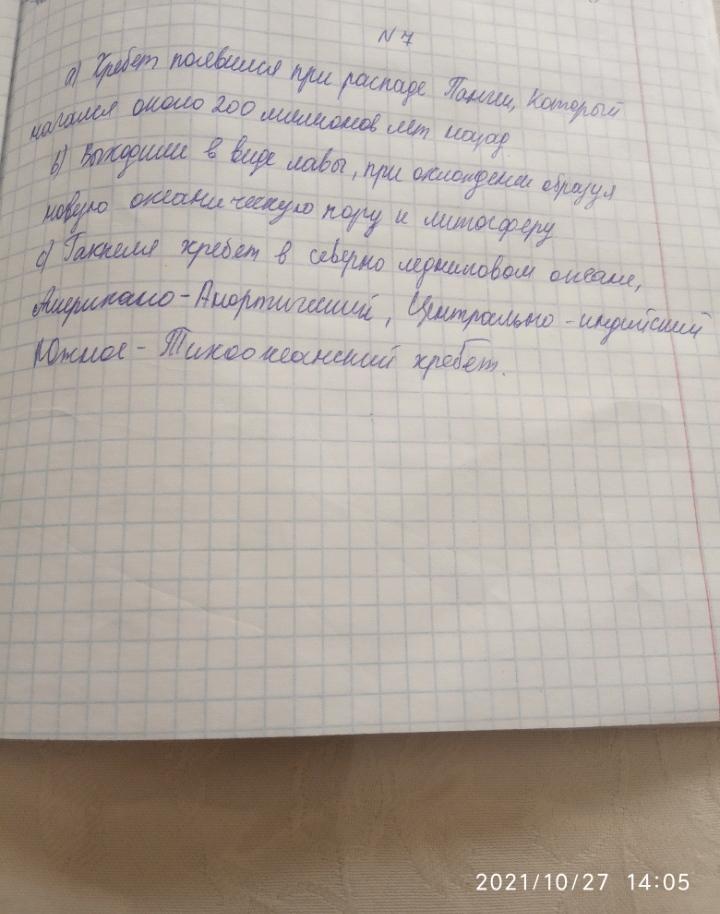 N 7
а) Хребет появился при распаде Пангеи, который
начался около 200 миллионов лет назад.
b) Выходили в виде лавы, при охлождении образуя
новую океаническую кору и литосферу
c) Гаккеля хребет в северно ледниловом океане,
Американо-Анортический, Центрально-индийский
Южное-Тихоокеанский хребет.
2021/10/27 14:05